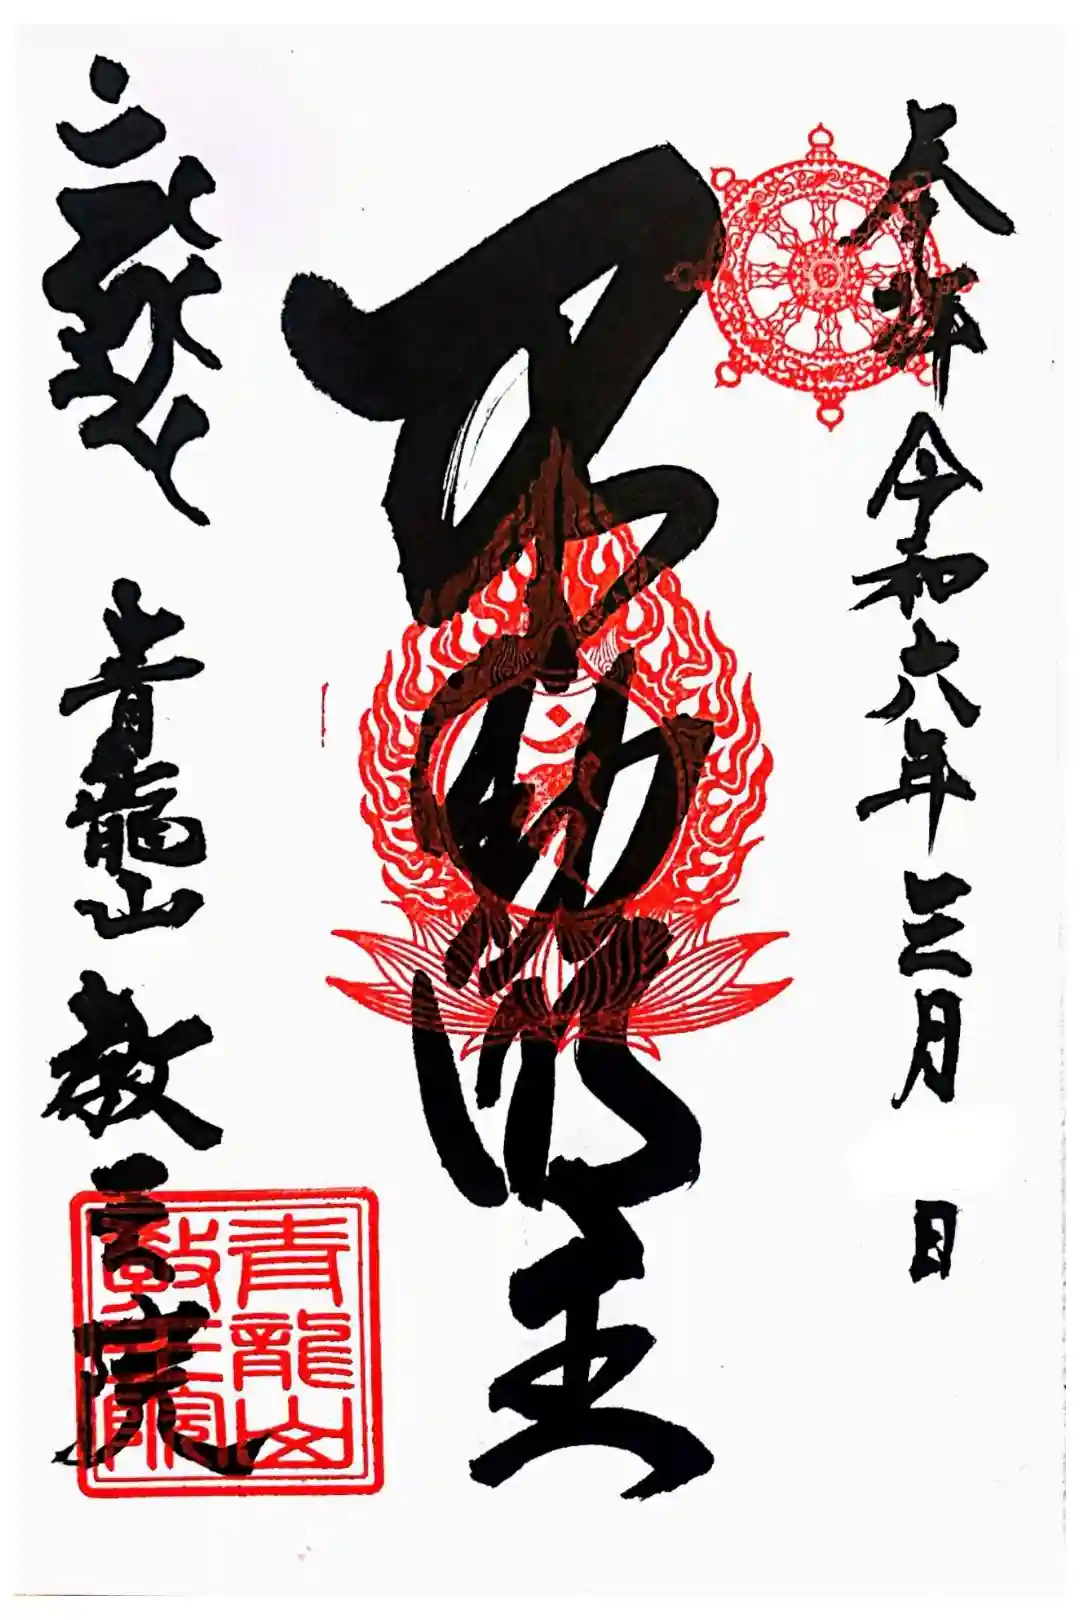 奉拝 令和六年三月 日
不動明王
青龍山 教王院
青龍山
教王院